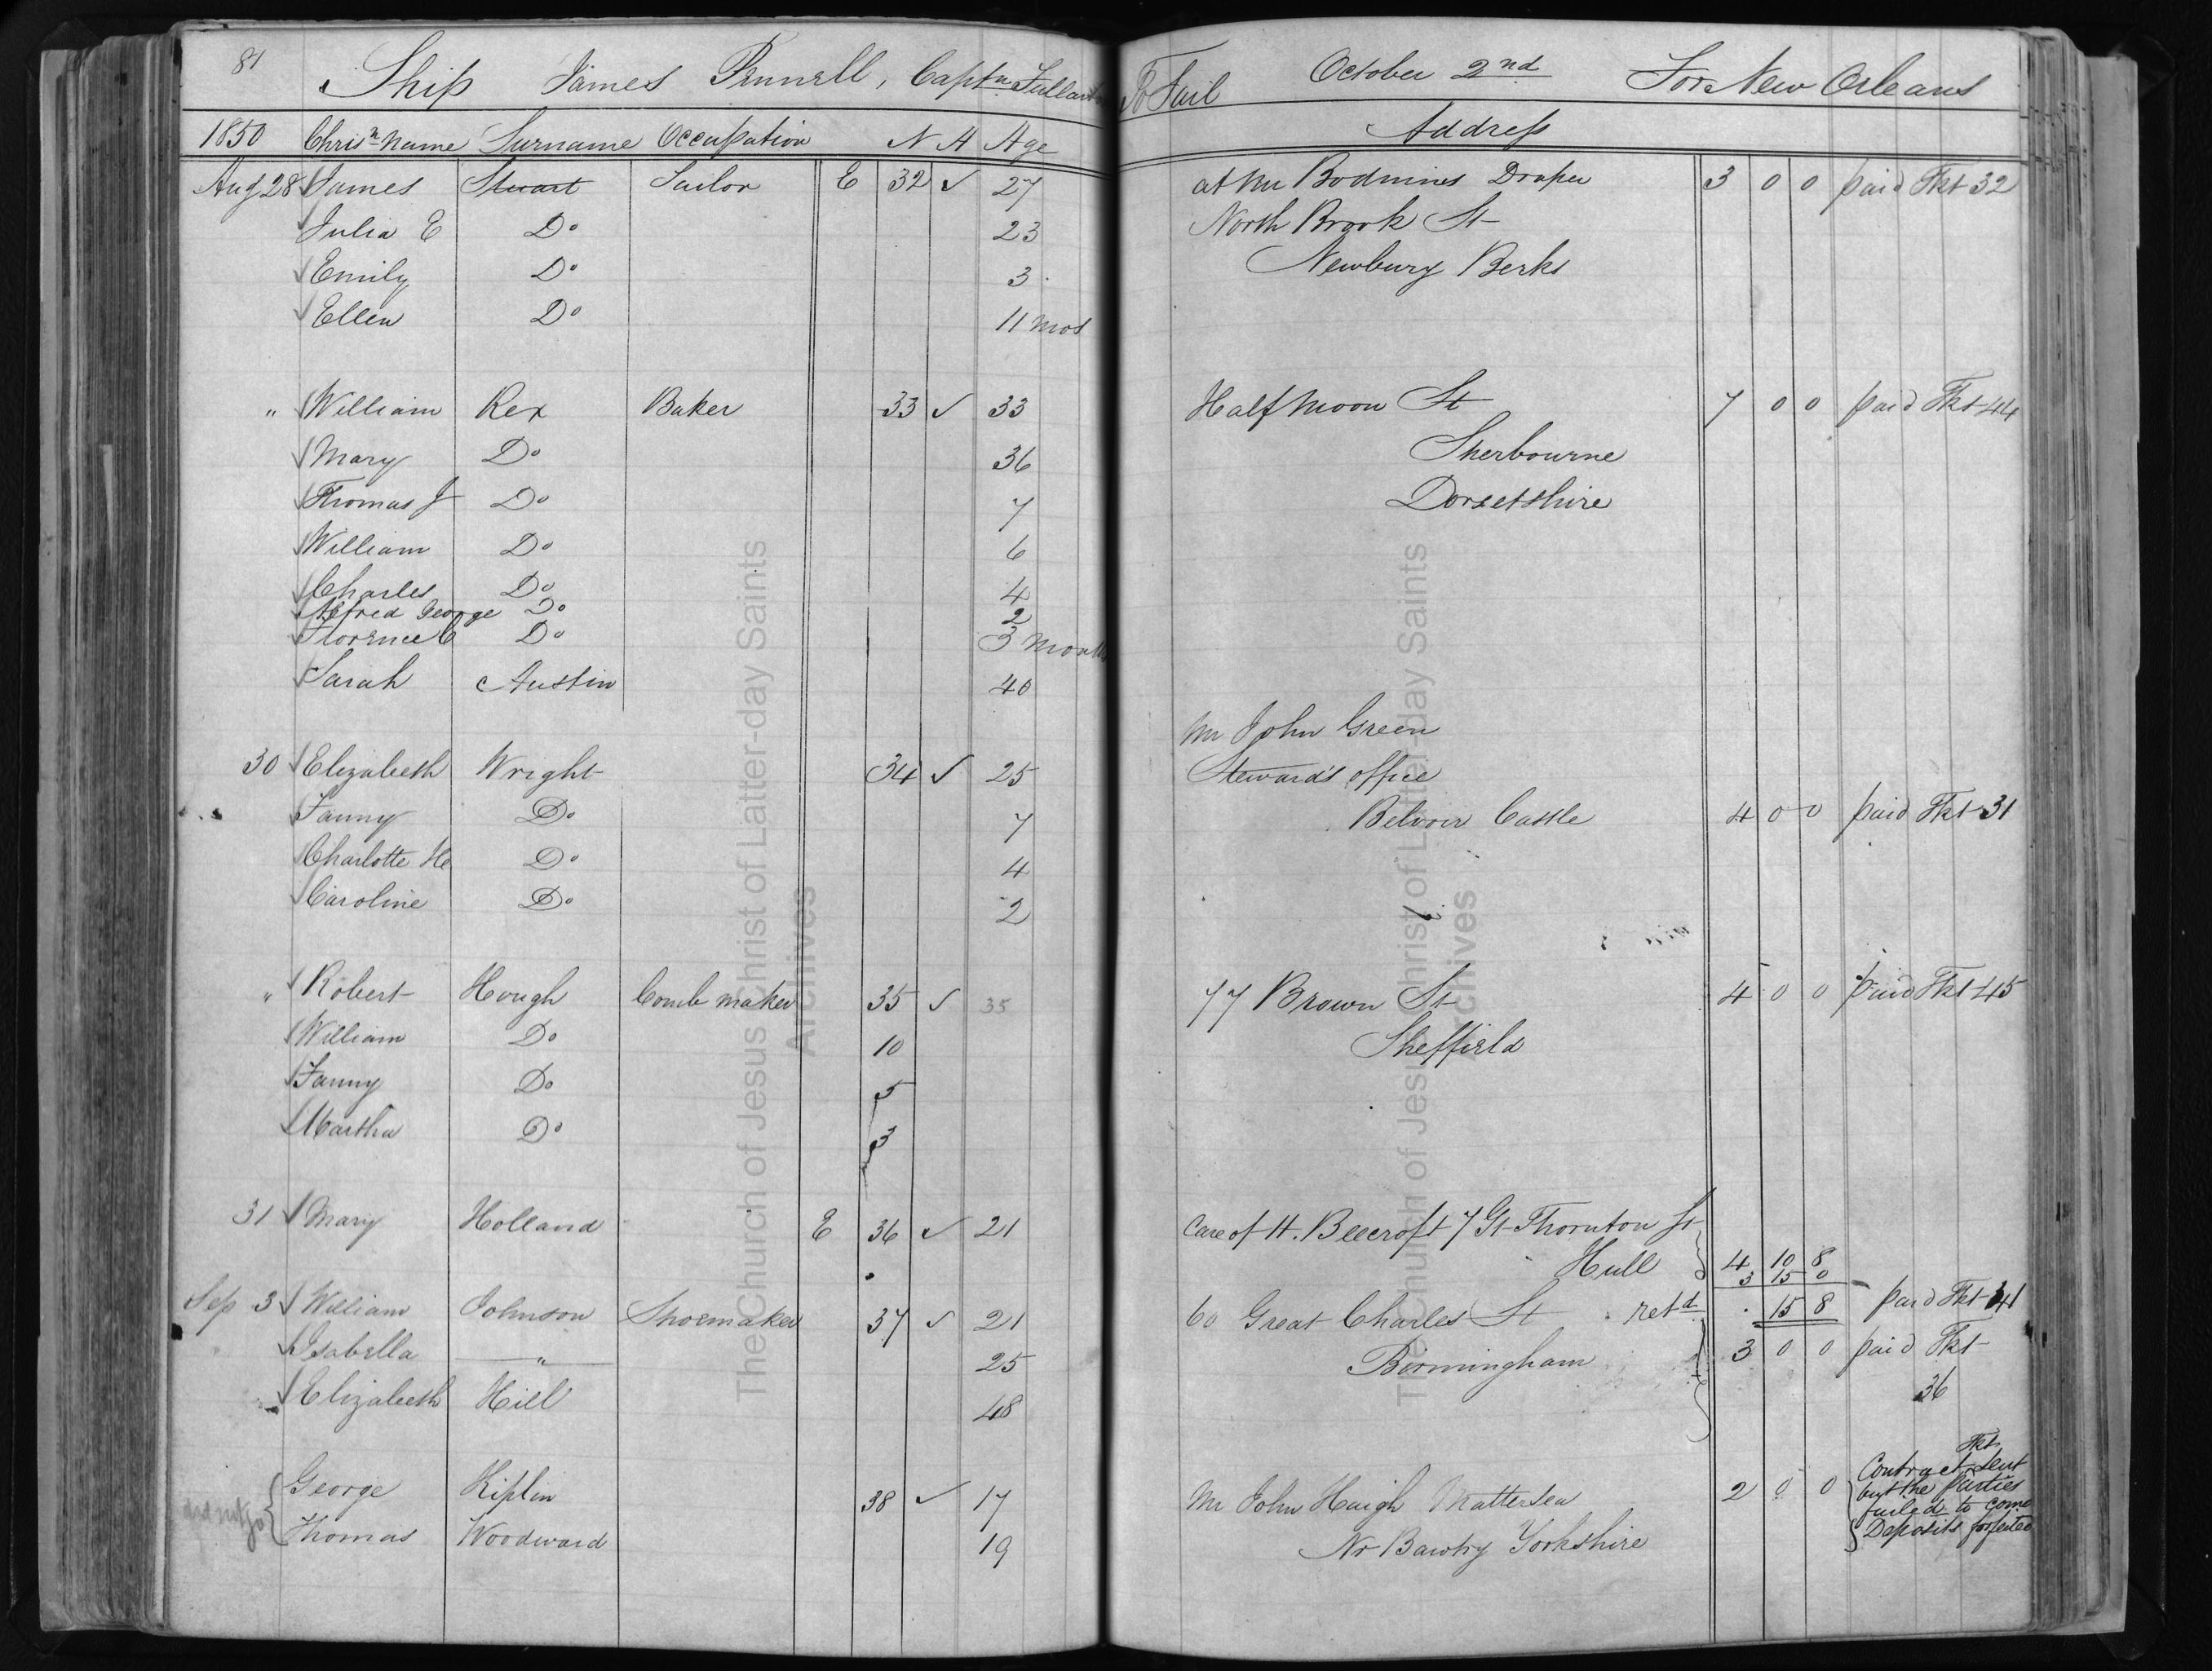 81 Ship James Pennell, Captn Fullarton To Sail October 2nd For New Orleans
1850 Chrisn Name Surname Occupation N A Age Address
Aug 28 James Stewart Tailor E 32 ✓ 27 at Mr Bodmines Draper 3 0 0 paid Tkt 32
Julia E Do 23 North Brook St
Emily Do 3 Newbury Berks
Ellen Do 11 mos
" William Rex Baker 33 ✓ 33 Half Moon St 7 0 0 paid Tkt 44
Mary Do 36 Sherbourne
Thomas J Do 7 Dorsetshire
William Do 6
Charles Do 4
Alfred George Do 2
Florence E Do 3 Months
Sarah Austin 40
Mr John Green
30 Elizabeth Wright 34 ✓ 25 Steward's office
Fanny Do 7 Belvoir Castle 4 0 0 paid Tkt 31
Charlotte He Do 4
Caroline Do 2
" Robert Hough Comb maker 35 ✓ 35 77 Brown St 4 0 0 paid Tkt 45
William Do 10 Sheffield
Fanny Do 5
Martha Do 3
31 Mary Holland E 36 ✓ 21 Care of H. Beecroft 7 Gt Thornton St
Hull 4 10 8
3 15 0
Sep 3 William Johnson Shoemaker 37 ✓ 21 60 Great Charles St retd . 15 8 paid Tkt 41
Isabella " 25 Birmingham 3 0 0 paid Tkt
Elizabeth Hill 48 36
George Kiplin 38 ✓ 17 Mr John Haigh Mattersea 2 0 0 Contract Tkt sent
but the parties
failed to come
Deposits forfeited
Thomas Woodward 19 Nr Bawtry Yorkshire
The Church of Jesus Christ of Latter-day Saints
Archives
The Church of Jesus Christ of Latter-day Saints
Archives